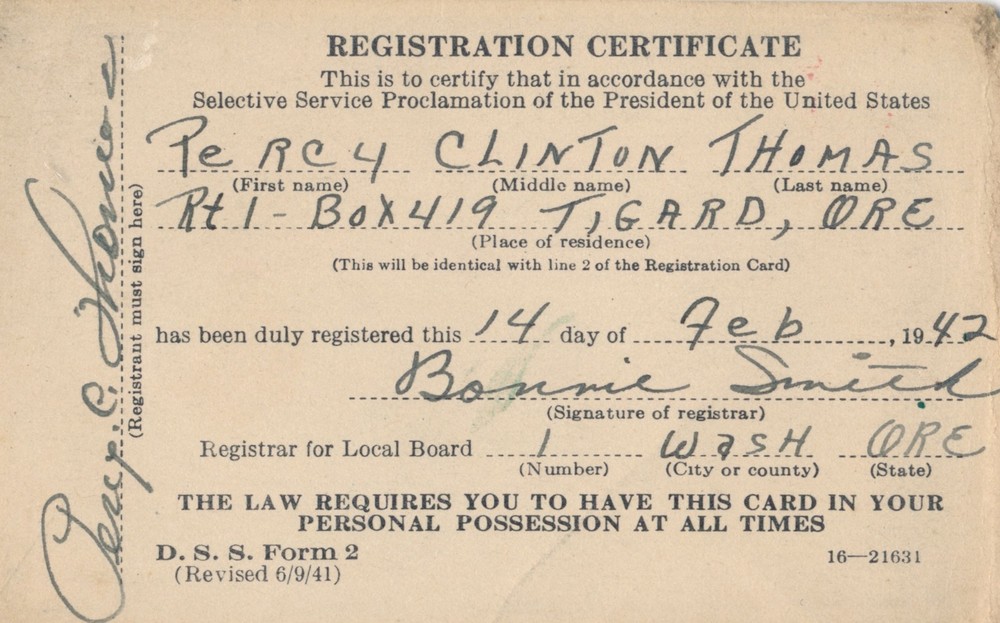 REGISTRATION CERTIFICATE
This is to certify that in accordance with the
Selective Service Proclamation of the President of the United States
PeRCy CLINTON THOMAS
(First name) (Middle name) (Last name)
Rt 1 - Box 419 TIGARD, ORE
(Place of residence)
(This will be identical with line 2 of the Registration Card)
has been duly registered this 14 day of Feb, 1942
Bonnie Smith
(Signature of registrar)
Registrar for Local Board 1 WasH ORE
(Number) (City or county) (State)
THE LAW REQUIRES YOU TO HAVE THIS CARD IN YOUR
PERSONAL POSSESSION AT ALL TIMES
D. S. S. Form 2
(Revised 6/9/41)
16—21631
Percy C. Thomas
(Registrant must sign here)